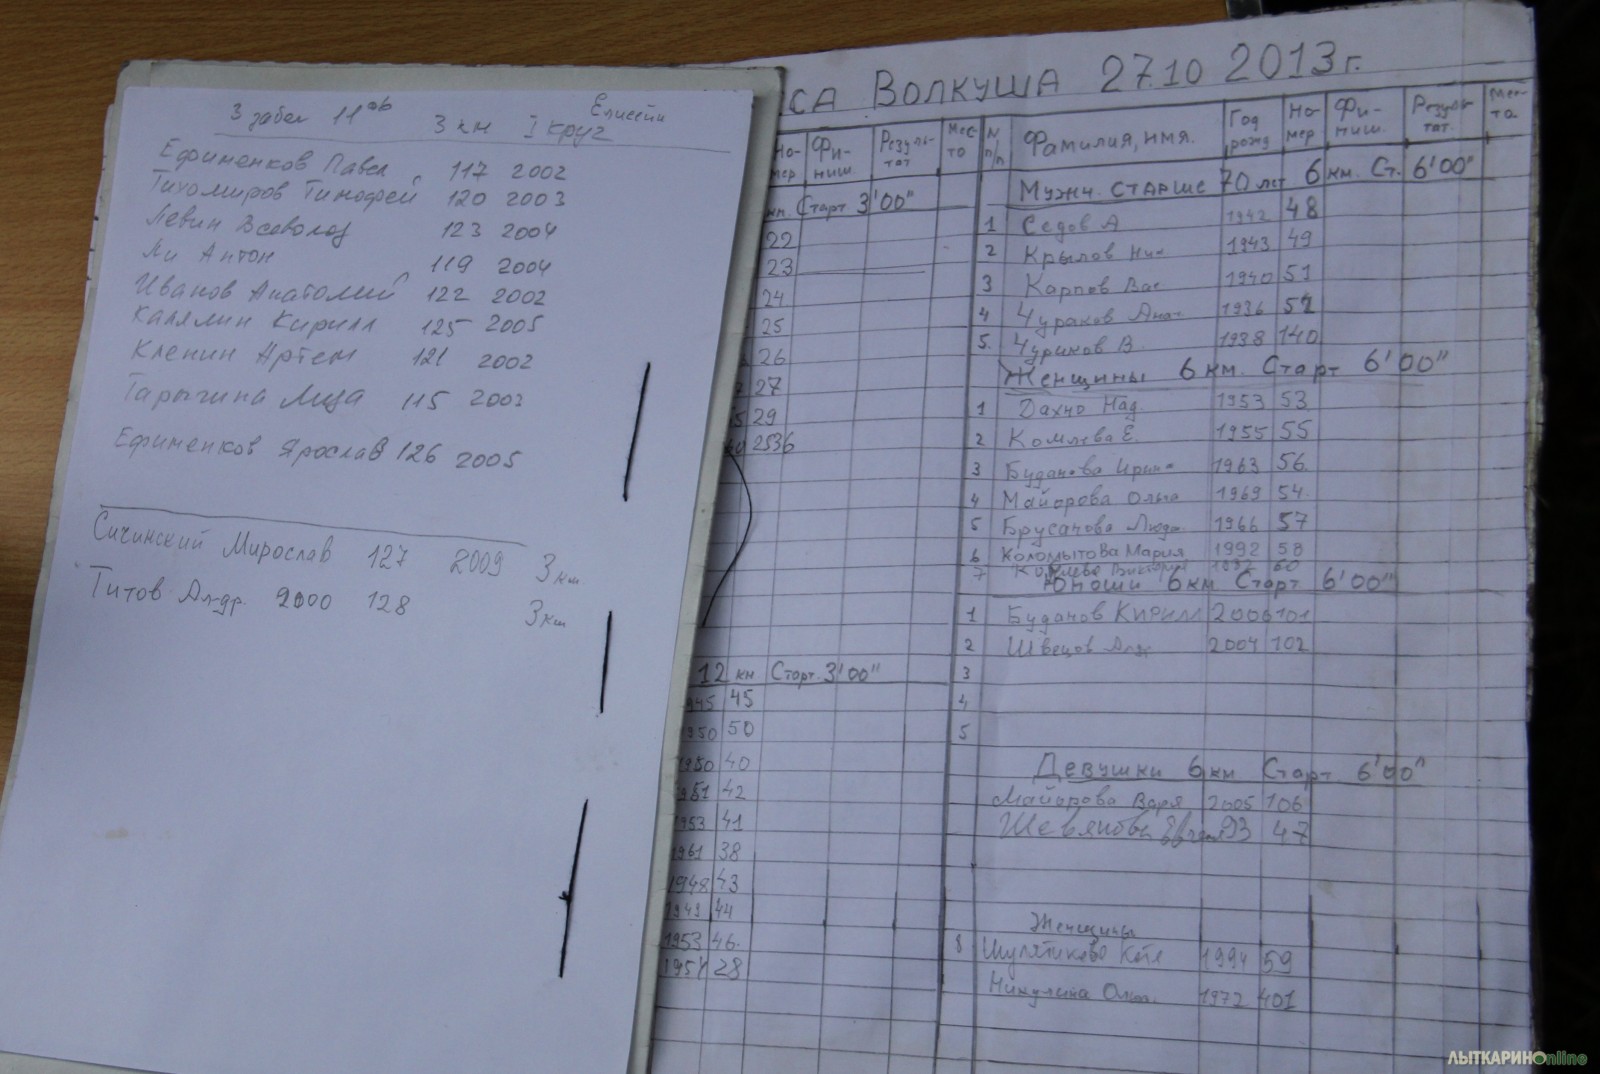 3 забег 11⁰⁰ 3 км I круг
Ефименков Павел 117 2002
Тихомиров Тимофей 120 2003
Левин Всеволод 123 2004
Ли Антон 119 2004
Иванов Анатолий 122 2002
Калялин Кирилл 125 2005
Кленин Артем 121 2002
Тарыгина Лиза 115 2003
Ефименков Ярослав 126 2005
Сичинский Мирослав 127 2009 3 км
Титов Ал-др. 2000 128 3 км
СА ВОЛКУША 27.10 2013 г.
Но-мер Фи-ниш. Резуль-тат Мес-то
Старт 3'00"
22
23
24
25
26
27
29
2536
12 км Старт. 3'00"
45
1950 50
1950 40
1951 42
1953 41
1961 38
1948 43
1949 44
1953 46.
28
N п/п Фамилия, имя. Год рожд Но-мер Фи-ниш. Резуль-тат. Мес-та
Мужч. СТАРШЕ 70 лет 6 км. Ст. 6'00"
1 Седов А 1942 48
2 Крылов Ник 1943 49
3 Карпов Вас 1940 51
4 Чураков Анат 1936 52
5. Чуриков В. 1938 140
Женщины 6 км. Старт 6'00"
1 Дахно Над. 1953 53
2 Е. 1955 55
3 Буданова Ирина 1963 56.
4 Майорова Ольга 1969 54.
5 Брусанова Людм. 1966 57
6 Коломытова Мария 1992 58
7 Виктория 60
Юноши 6 км Старт 6'00"
1 Буданов Кирилл 2006 101
2 Швецов 2004 102
3
4
5
Девушки 6 км Старт 6'00"
Майорова Варя 2005 106
93 47
Женщины
8 Катя 1994 59
Никулина Ольг. 1972 401
ЛЫТКАРИНОonline